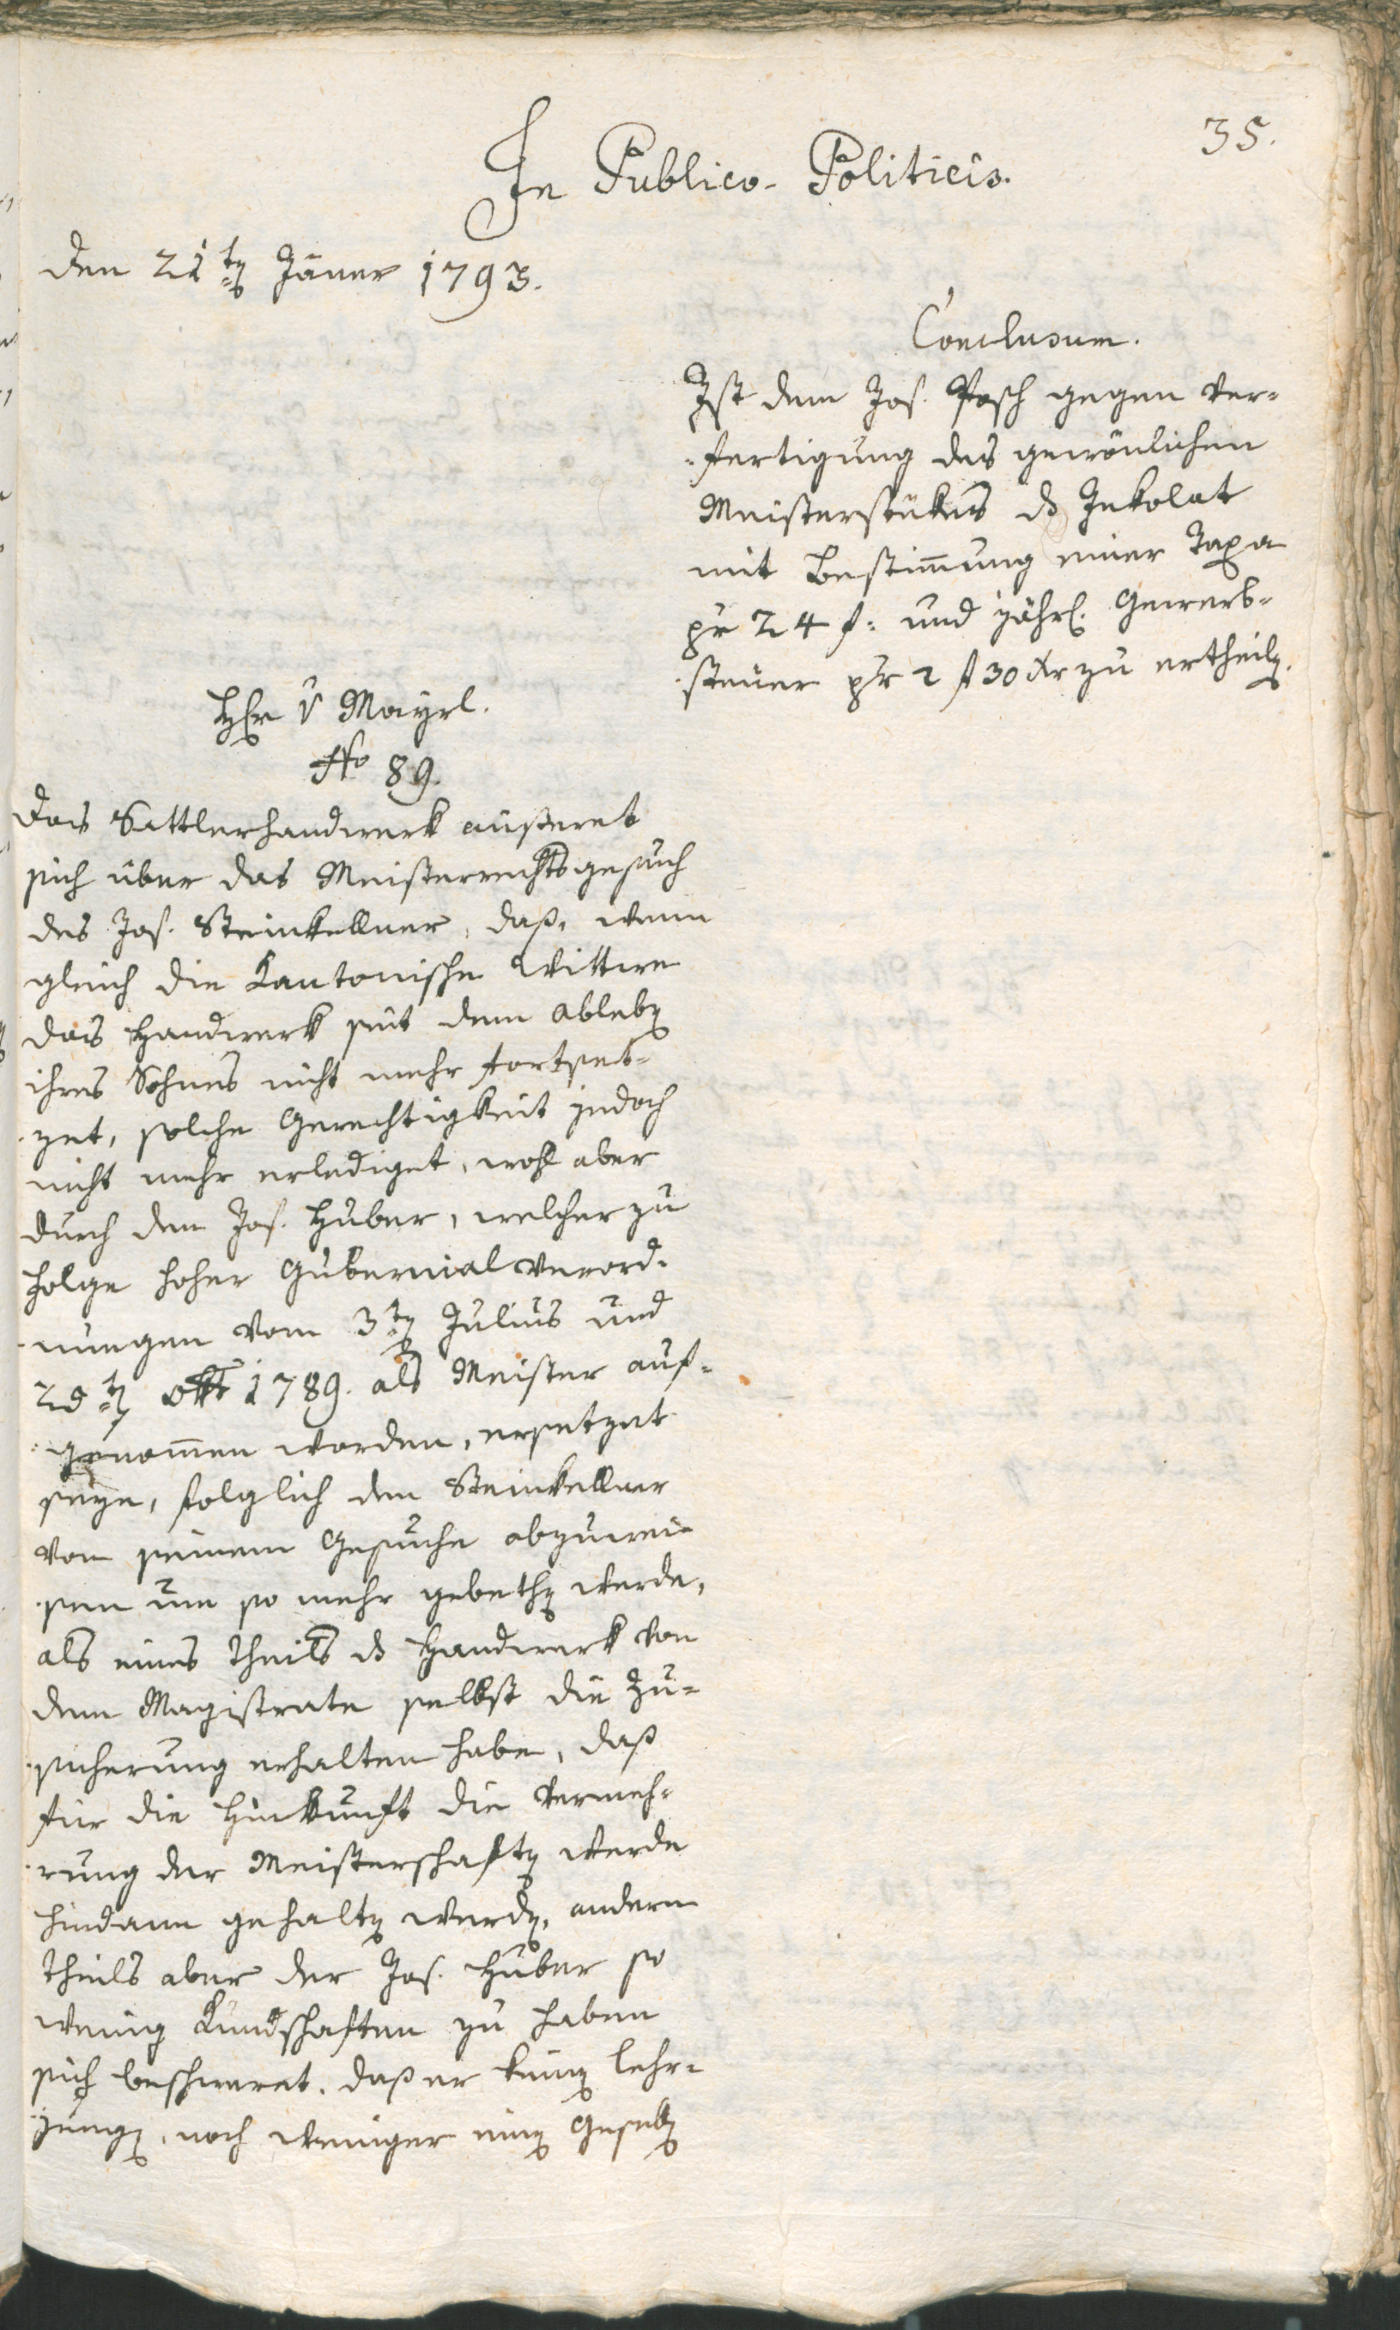 35.
In Publico-Politicis.
den 21ten Jäner 1793.
Conclusum.
Ist dem Jos. Posch gegen Ver-
fertigung des gewönlichen
Meisterstükes ds Inkolat
mit Bestimmung einer Taxa
pr 24 f: und jährl. Gewerb-
steuer pr 2 f 30 xr zu ertheilen.
Hr v Mayrl.
No 89.
Das Sattlerhandwerk äußeret
sich über das Meisterrechtsgesuch
des Jos. Steinkellner, daß, wenn
gleich die Kantonische Wittwe
das Handwerk seit dem Ableben
ihres Sohnes nicht mehr fortset-
zet, solche Gerechtigkeit jedoch
nicht mehr erlediget, wohl aber
durch den Jos. Huber, welcher zu
Folge hoher Gubernialverord-
nungen vom 3ten Julius und
28ten Okt 1789. als Meister auf-
genommen worden, ersetzet
seye, folglich den Steinkellner
von seinem Gesuche abzuwei-
sen um so mehr gebethen werde,
als eines Theils ds Handwerk von
dem Magistrate selbst die Zu-
sicherung erhalten habe, daß
für die Hinkunft die Vermeh-
rung der Meisterschaften werde
hindann gehalten werden, andern
Theils aber der Jos. Huber so
wenig Kundschaften zu haben
sich beschweret, daß er keinen Lehr-
jungen, noch weniger einen Gesellen